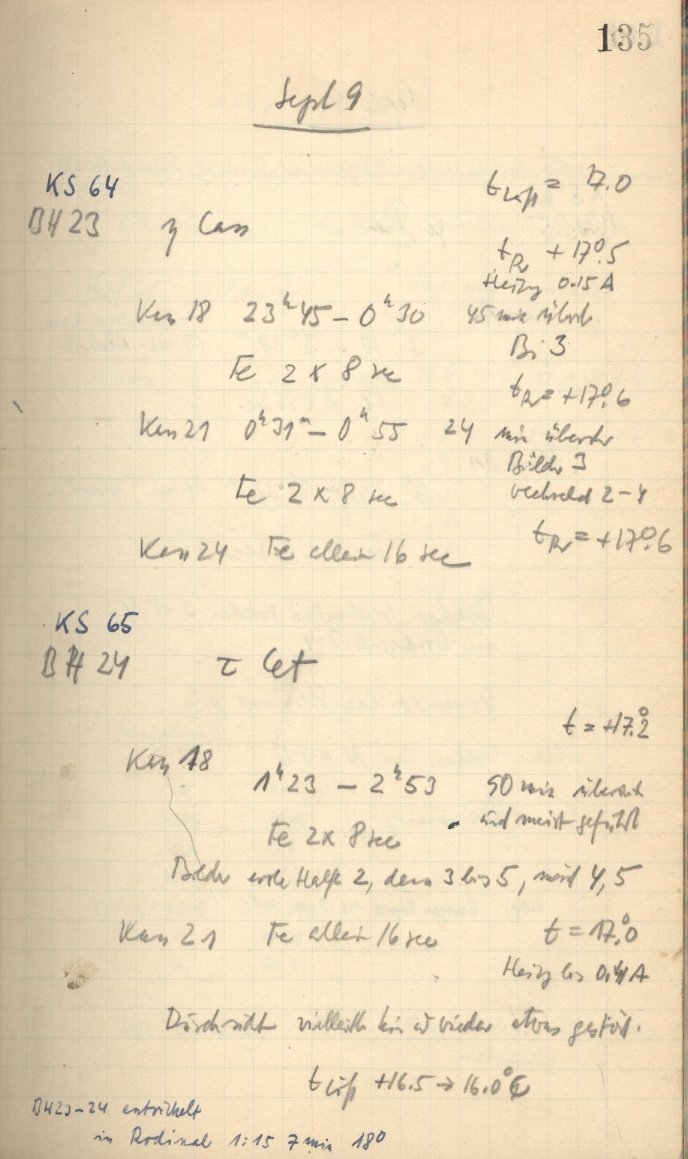 135
Sept 9
KS 64
t Luft = 17.0
BH 23 η Cass
t Pr + 17°.5
Heizg 0.15 A
Kas 18 23h45 – 0h30 45 min überbel
Bi 3
Fe 2 x 8 sec
t Pr = +17°.6
Kas 21 0h31m – 0h55 24 min
Bilder 3
Fe 2 x 8 sec wechselnd 2–4
Kas 24 Fe allein 16 sec t Pr = +17°.6
KS 65
BH 24 τ Cet
t = +17°.2
Kas 18
1h23 – 2h53 90 min
und meist geführt
Fe 2x 8 sec
Bilder erste Hälfte 2, dann 3 bis 5, meist 4,5
Kas 21 Fe allein 16 sec t = 17°.0
Heizg bis 0,4 A
Durchsicht vielleicht hin u wieder etwas gestört.
t Luft +16.5 → 16.0° C
BH23–24 entwickelt
in Rodinal 1:15 7 min 18°